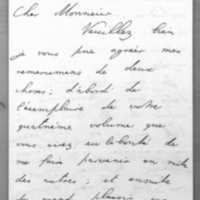 Cher Monsieur
Veuillez bien
je vous prie agréer mes
remerciemens de deux
choses; d'abord de
l'exemplaire de votre
quatrième volume que
vous avez eu la bonté de
me faire parvenir en suite
des autres; et ensuite
du grand plaisir